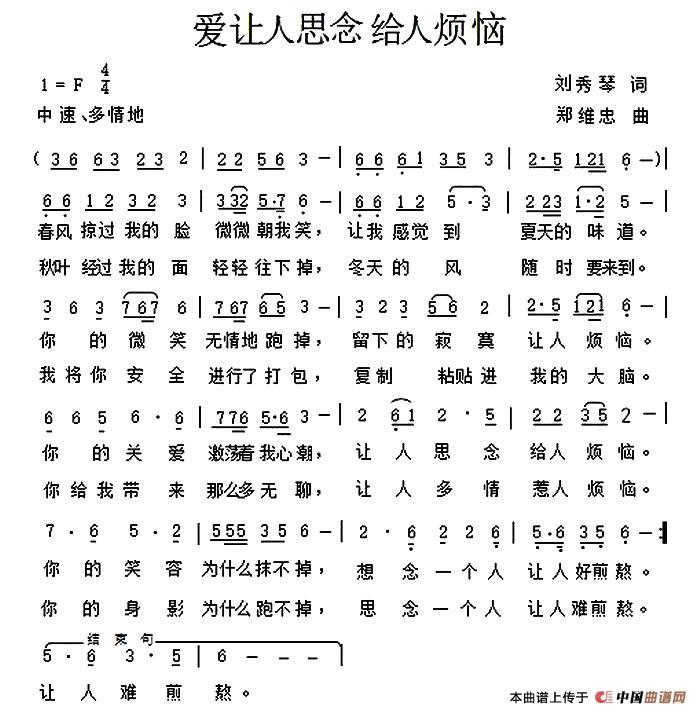 爱让人思念 给人烦恼
1 = F 4/4
刘秀琴 词
中速、多情地
郑维忠 曲
( 3 6 6 3 2 3 2 | 2 2 5 6 3 — | 6 6 6 1 3 5 3 | 2 · 5 1 2 1 6 — )|
6 6 1 2 3 2 3 | 3 3 2 5 · 7 6 — | 6 6 1 2 5 · 3 | 2 2 3 1 · 2 5 — |
春风 掠过 我的 脸 微微 朝我 笑， 让我 感觉 到 夏天的 味 道。
秋叶 经过 我的 面 轻轻 往下 掉， 冬天 的 风 随 时 要来 到。
3 6 3 7 6 7 6 | 7 6 7 6 5 3 — | 3 2 3 5 6 2 | 2 · 5 1 2 1 6 — |
你 的 微 笑 无情地 跑 掉， 留下的 寂 寞 让人 烦 恼。
我将你 安 全 进行了 打 包， 复制 粘贴进 我的 大 脑。
6 6 6 · 6 | 7 7 6 5 · 6 3 — | 2 6 1 2 · 5 | 2 2 3 5 2 — |
你 的 关 爱 激荡着 我心 潮， 让 人 思 念 给人 烦 恼。
你给我 带 来 那么多 无 聊， 让 人 多 情 惹人 烦 恼。
7 · 6 5 · 2 | 5 5 5 3 5 6 — | 2 · 6 2 2 6 | 5 · 6 3 5 6 — :|
你 的 笑 容 为什么 抹不 掉， 想 念 一 个 人 让人 好煎 熬。
你 的 身 影 为什么 跑不 掉， 思 念 一 个 人 让人 难煎 熬。
结 束 句
5 · 6 3 · 5 | 6 — — — |
让 人 难 煎 熬。
本曲谱上传于 中国曲谱网